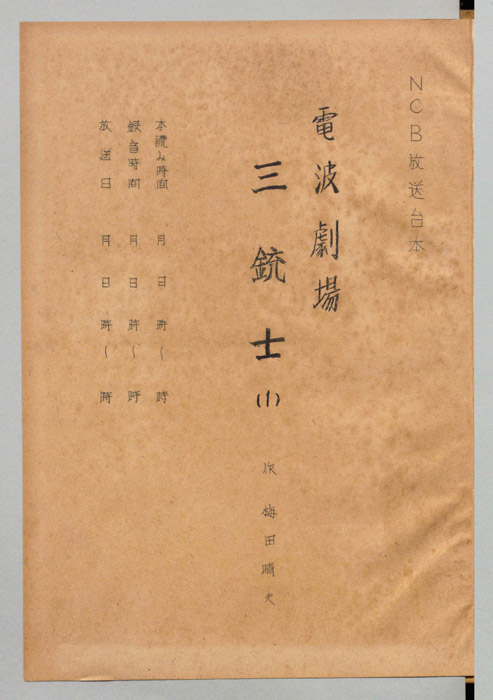 NCB放送台本
電波劇場
三銃士(1)
作 梅田晴夫
本読み時間 月 日 時~ 時
録音時間 月 日 時~ 時
放送日 月 日 時~ 時